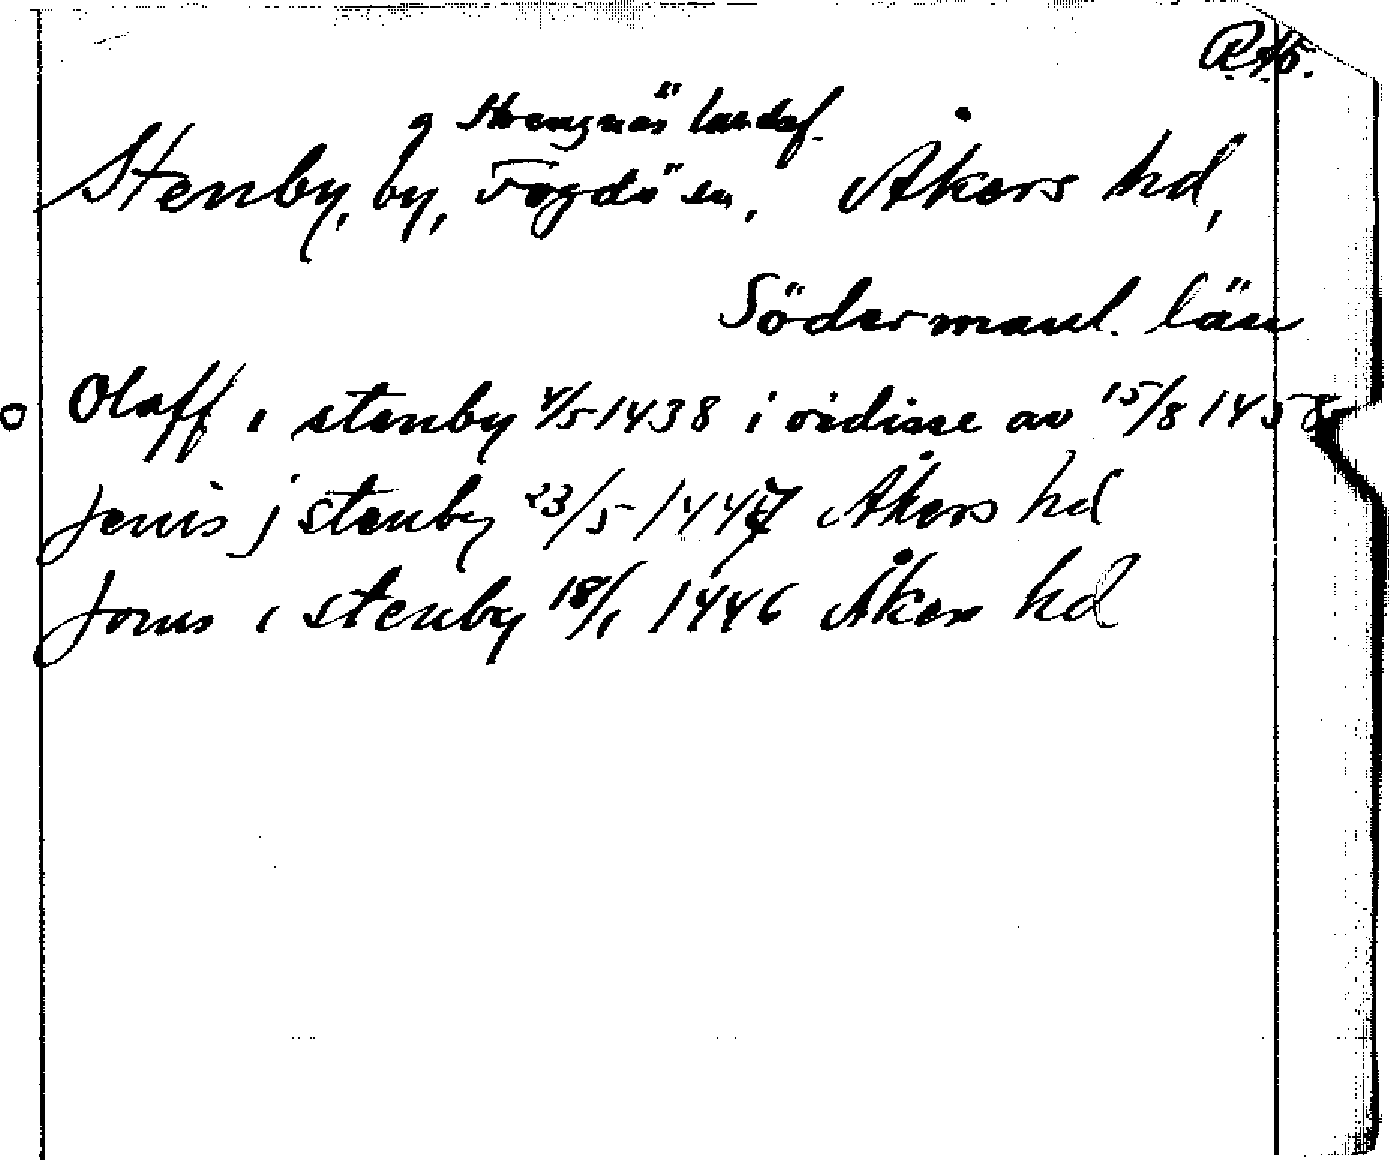 R.Ab.
g Strengnäs landsf.
Stenby, by, Fogdö sn, Åkers hd,
Södermanl. län
Olaff i stenby 4/5 1438 i vidisse av 15/8 1458
Jenis j stenby 23/5 1447 Åkers hd
Jonis i stenby 18/1 1446 Åkers hd